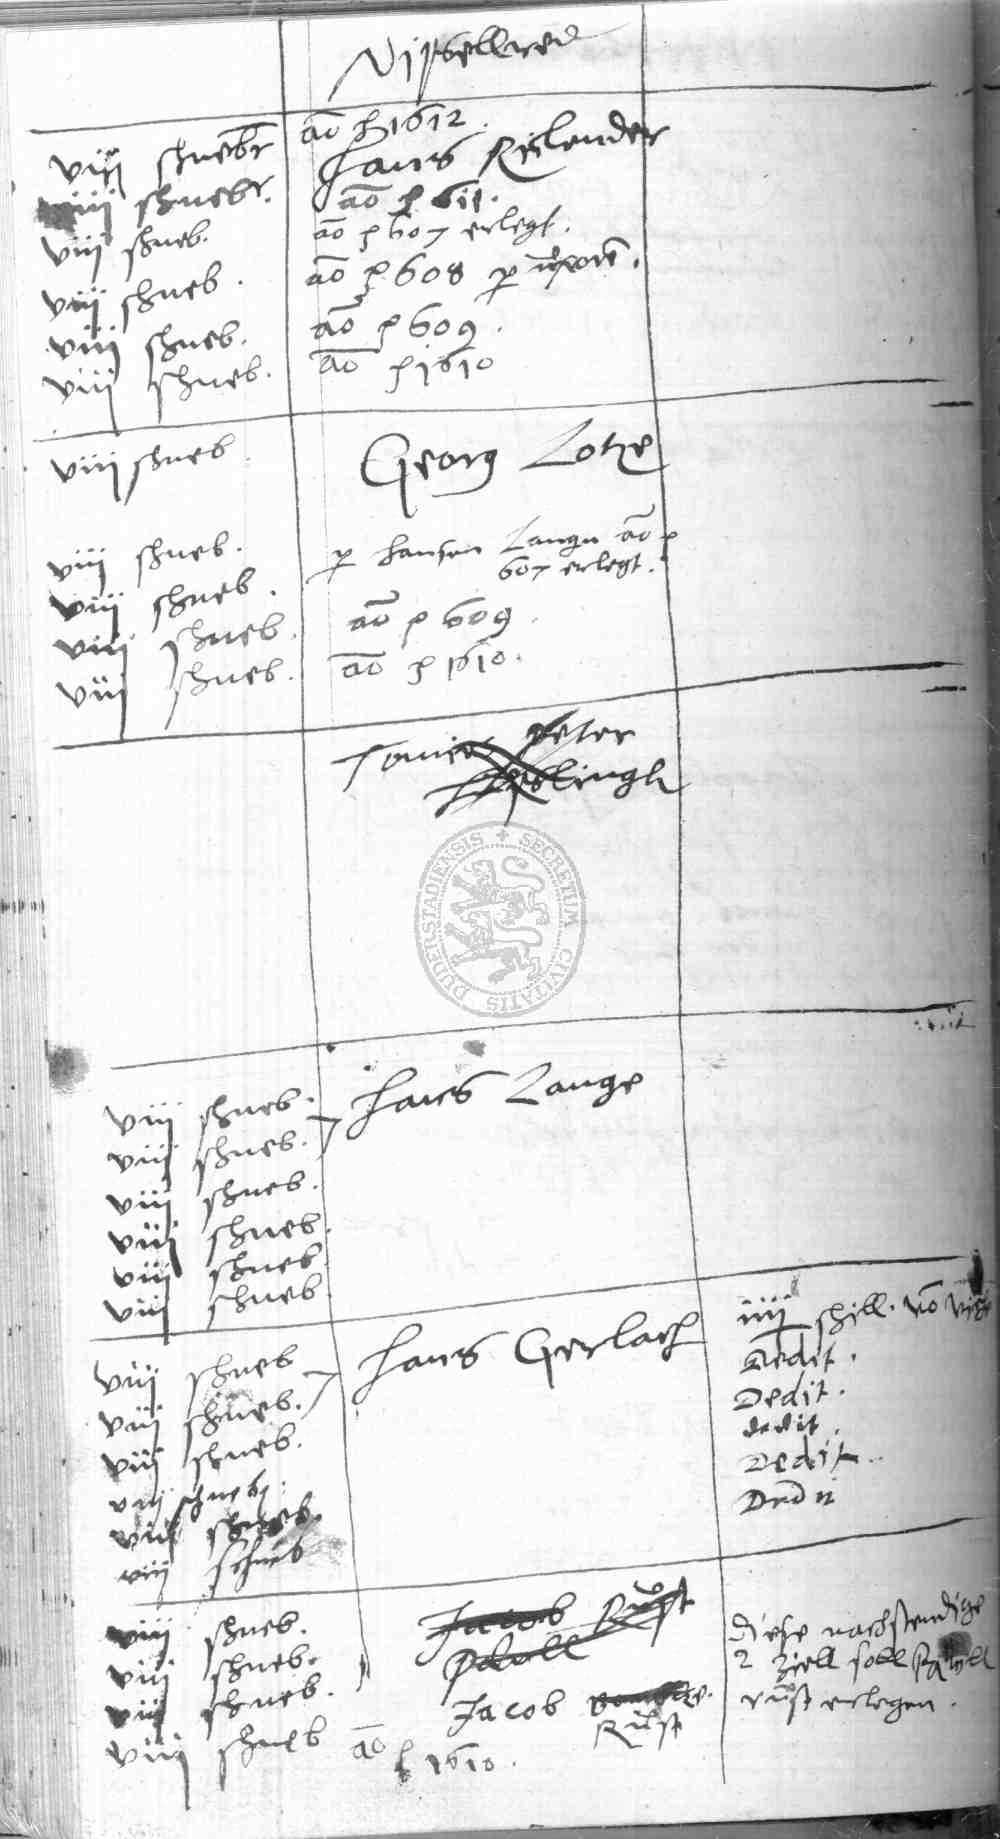 viij schneb
aō p 1612.
viiij schneb.
Hans Rislender
aō p 611.
viij schneb.
aō p 607 erlegt.
viij schneb.
aō p 608 p uxore.
viij schneb.
aō p 609.
viij schneb.
aō p 1610
viij schneb
Georg Lotze
viij schneb.
p Hansen Langen aō p
607 erlegt.
viij schneb.
viij schneb.
aō p 609.
viij schneb.
aō p 1610.
Peter
SECRETUM CIVITATIS DUDERSTADIENSIS
viij schneb.
Hans Lange
viij schneb.
viij schneb.
viij schneb.
viij schneb
viij schneb
viij schneb
Hans Gerlach
iiij schill. vō
Dedit.
viij schneb.
Dedit.
viij schneb.
dedit.
viij schneb.
Dedit.
viij schneb.
Dedit
viij schneb
viij schneb.
Jacob Rust
Diese nachstendige
viij schneb.
2 Ziell soll
viij schneb.
Jacob
Rust
rust erlegen.
viij schneb
aō p 1610.